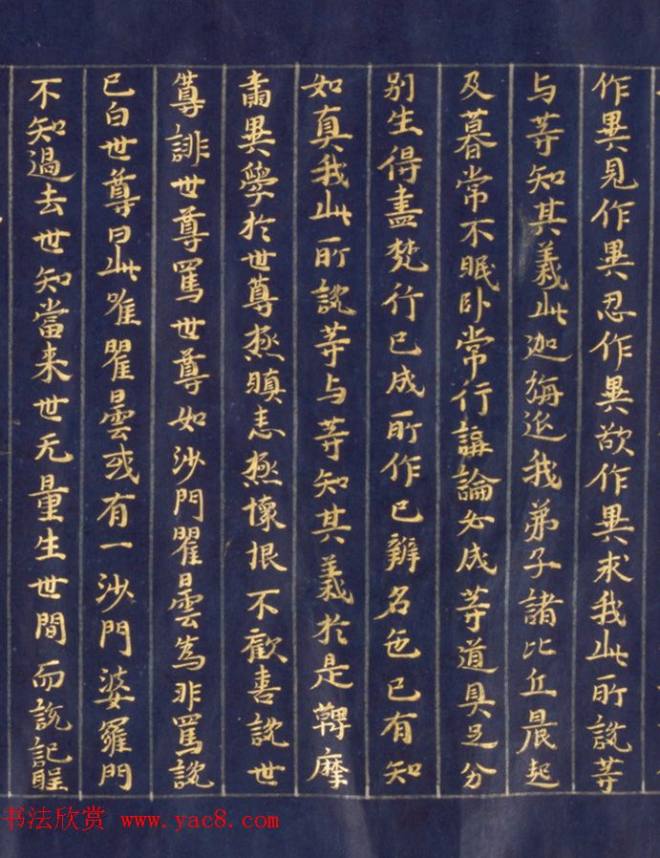 作異見作異忍作異欲作異求我此所說等
与等知其義此迦旃延我弟子諸比丘晨起
及暮常不眠卧常行講論必成等道具足分
別生得盡梵行已成所作已辦名色已有知
如真我此所說等与等知其義於是鞞摩
肅異學於世尊極瞋恚極懷恨不歡喜說世
尊誹世尊罵世尊如沙門瞿曇為非罵說
已白世尊曰此唯瞿曇或有一沙門婆羅門
不知過去世知當来世无量生世間而說記
书法欣赏 www.yac8.com